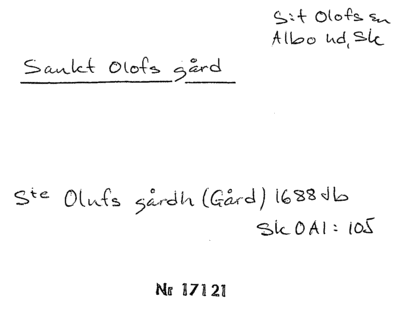 S:t Olofs sn
Albo hd, Sk
Sankt Olofs gård
Ste Olufs gårdh (Gård) 1688 Jb
Sk OA1: 105
Nr 17121